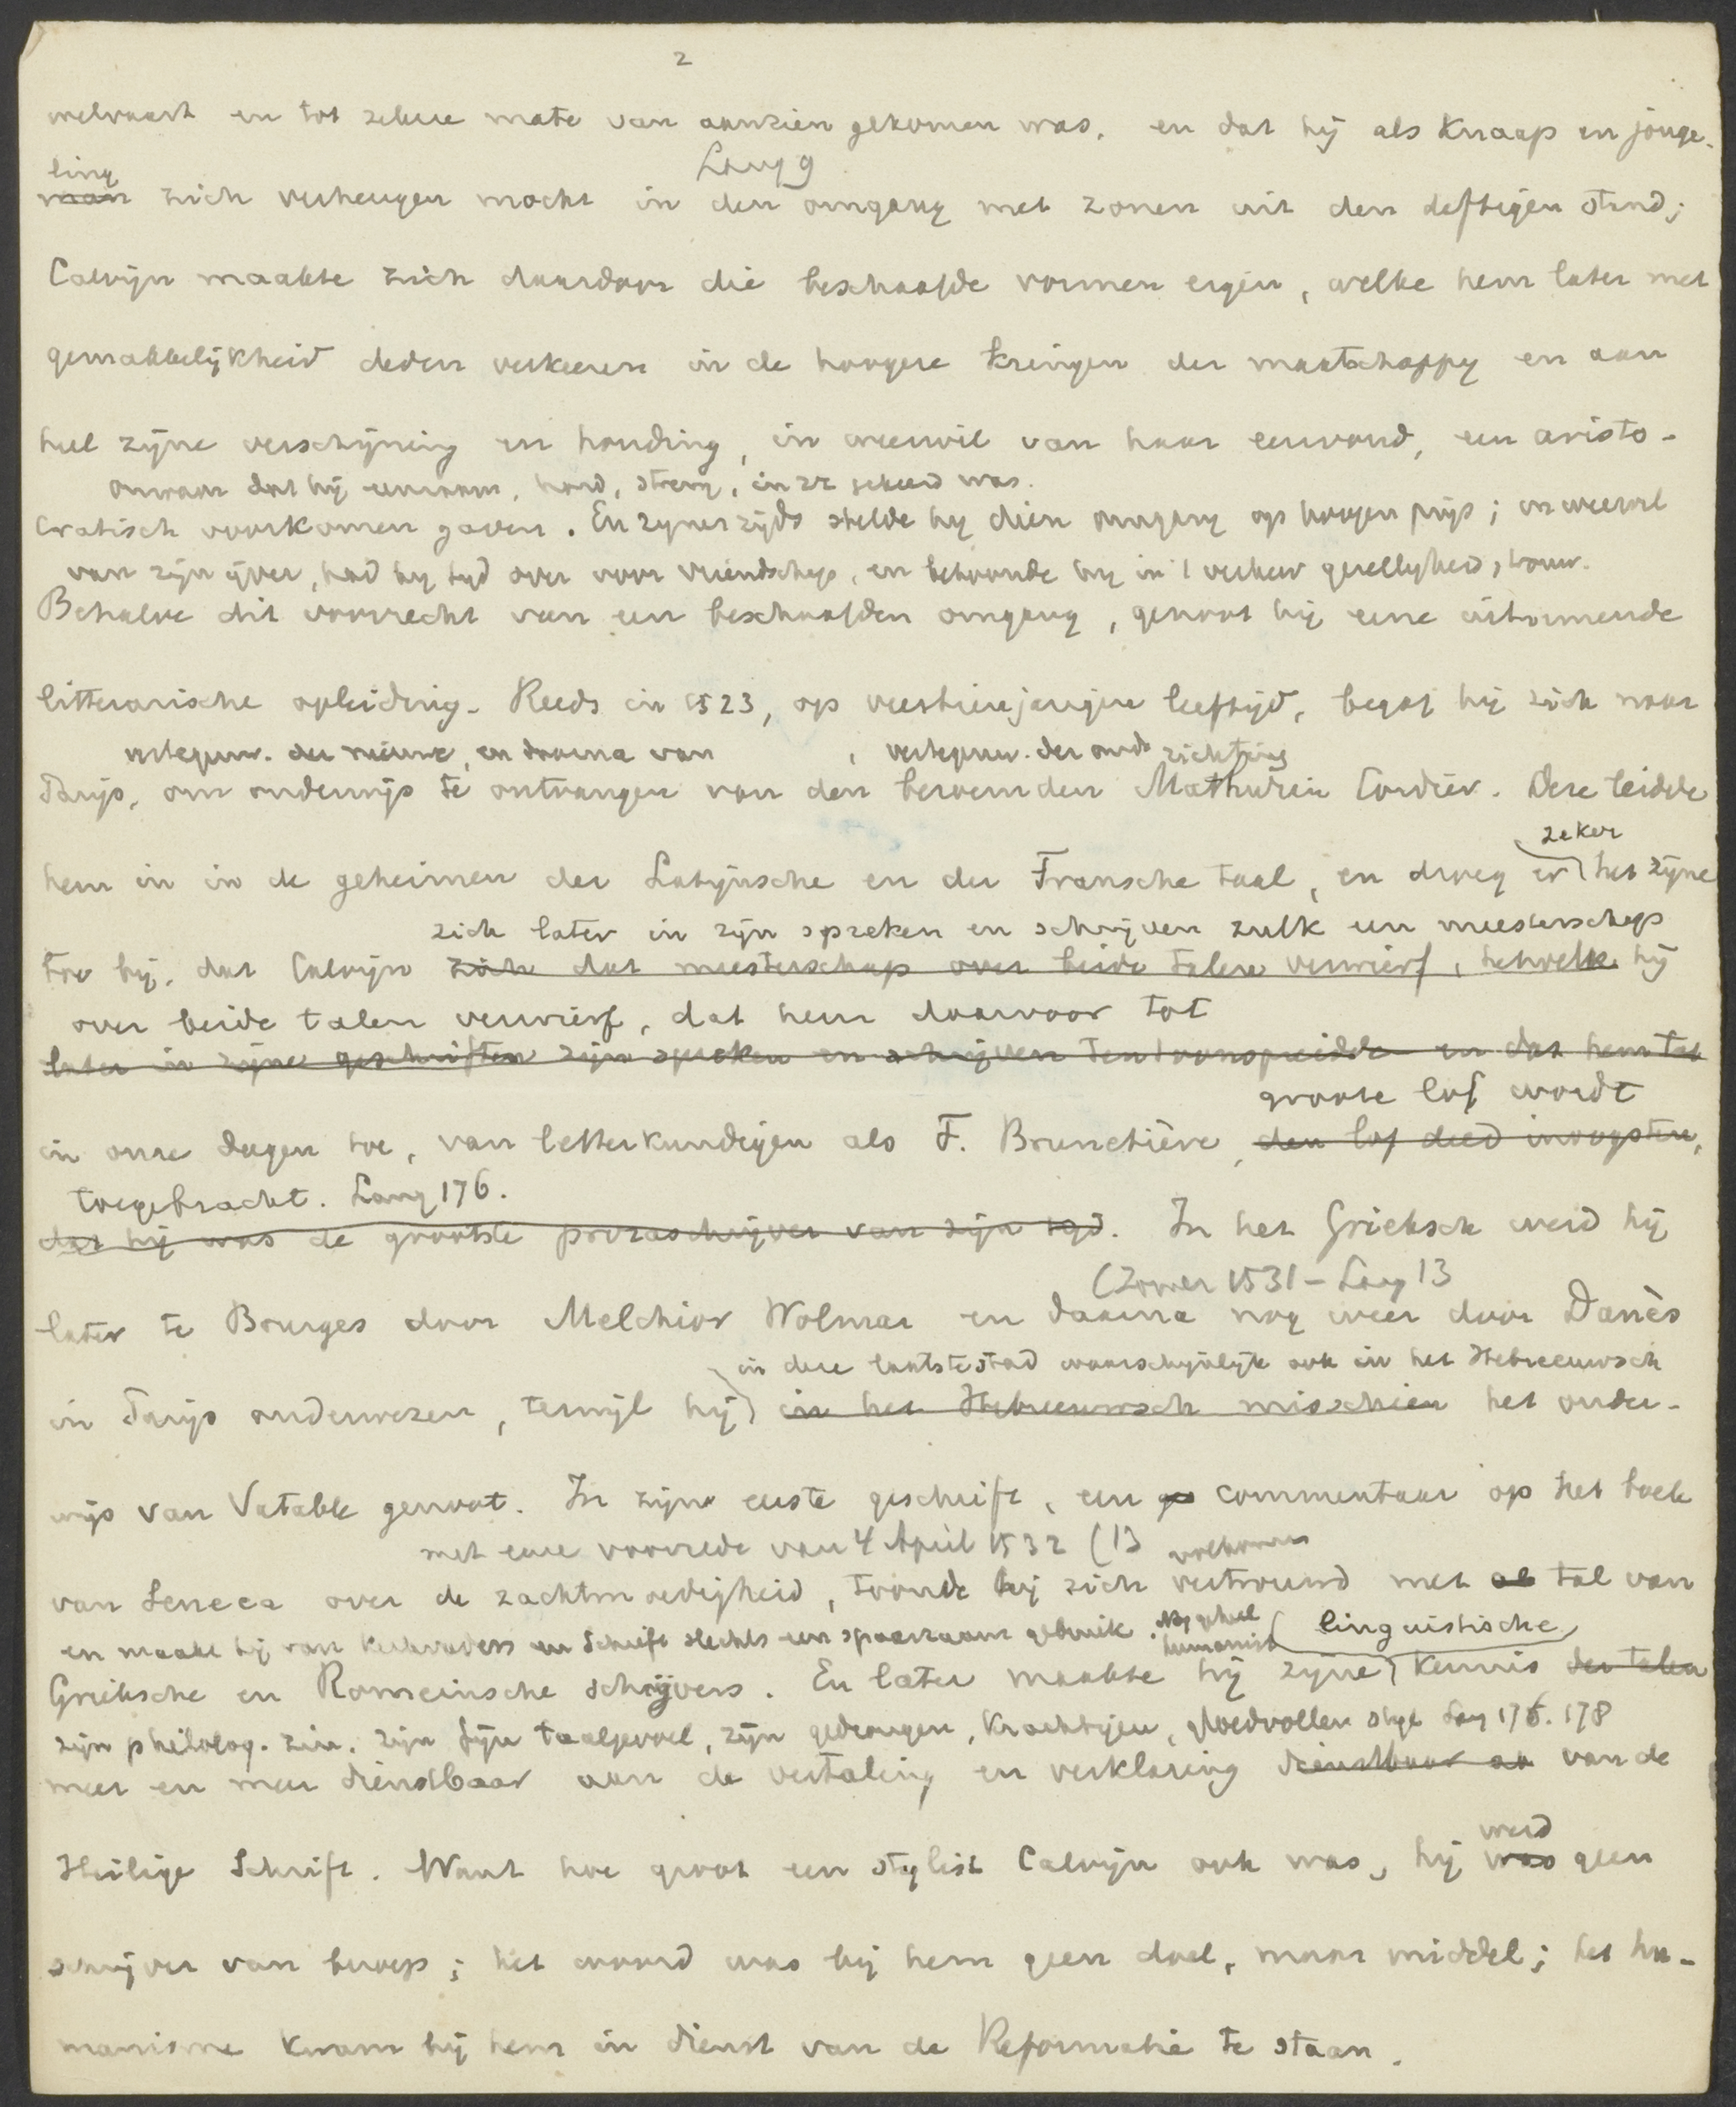 2
welvaart en tot zekere mate van aanzien gekomen was, en dat hij als knaap en jonge-
ling Lang 9
man zich verheugen mocht in den omgang met zonen uit den deftigen stand;
Calvijn maakte zich daardoor die beschaafde vormen eigen, welke hem later met
gemakkelijkheid deden verkeeren in de hoogere kringen der maatschappy en aan
heel zijne verschijning en houding, in weerwil van haar eenvoud, een aristo-
onwaar dat hij eenzaam, hard, streng, in zz gekeerd was.
cratisch voorkomen gaven. En zijnerzijds stelde hy dien omgang op hoogen prijs; in weerwil
van zijn ijver, had hy tyd over voor vriendschap, en betoonde hy in 't verkeer gezelligheid, trouw.
Behalve dit voorrecht van een beschaafden omgang, genoot hij eene uitnemende
litterarische opleiding. Reeds in 1523, op veertienjarigen leeftijd, begaf hij zich naar
vertegenw. der nieuwe, en daarna van , vertegenw. der oude richting
Parijs, om onderwijs te ontvangen van den beroemden Mathurin Cordier. Deze leidde
zeker
hem in in de geheimen der Latijnsche en der Fransche taal, en droeg er het zijne
zich later in zijn spreken en schrijven zulk een meesterschap
toe bij, dat Calvijn zich dat meesterschap over beide talen verwierf, hetwelk hij
over beide talen verwierf, dat hem daarvoor tot
later in zijne geschriften zijn spreken en schrijven tentoonspreidde en dat hem tot
groote lof wordt
in onze dagen toe, van letterkundigen als F. Brunetière, den lof deed inoogsten,
toegebracht. Lang 176.
dat hij was de grootste prozaschrijver van zijn tijd. In het Grieksch werd hij
(Zomer 1531 - Lang 13
later te Bourges door Melchior Wolmar en daarna nog weer door Danès
in deze laatste stad waarschijnlijk ook in het Hebreeuwsch
in Parijs onderwezen, terwijl hij in het Hebreeuwsch misschien het onder-
wijs van Vatable genoot. In zijne eerste geschrift, een ge commentaar op het boek
met eene voorrede van 4 April 1532 (13 volkomen
van Seneca over de zachtmoedigheid, toonde hij zich vertrouwd met al tal van
en maakt hij van kerkvaders en Schrift slechts een spaarzaam gebruik. Nog geheel humanist linguistische
Grieksche en Romeinsche schrijvers. En later maakte hij zijne kennis der talen
zijn philolog. zin, zijn fijn taalgevoel, zijn gedrongen, krachtigen, gloedvollen stijl Lang 176. 178
meer en meer dienstbaar aan de vertaling en verklaring dienstbaar aa van de
werd
Heilige Schrift. Want hoe groot een stylist Calvijn ook was, hij was geen
schrijver van beroep; het woord was bij hem geen doel, maar middel; het hu-
manisme kwam bij hem in dienst van de Reformatie te staan.